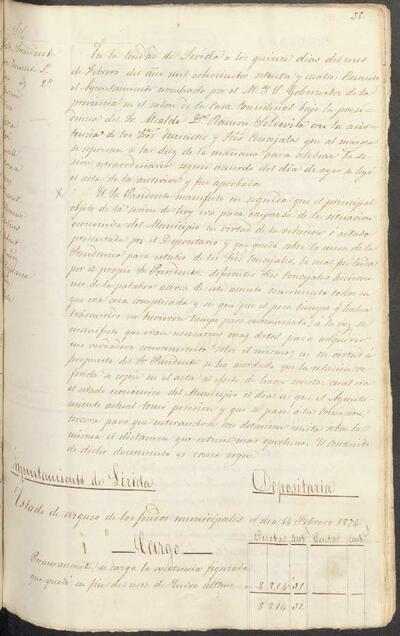 38.
En la Ciudad de Lérida a los quince dias del mes
de Febrero del año mil ochocientos setenta y cuatro. Reunido
el Ayuntamiento nombrado por el M. Y. S. Gobernador de la
provincia en el salon de la Casa Consistorial bajo la presi-
dencia del Sr. Alcalde Dn. Ramon con la asis-
tencia de los Sres. Tenientes y Sres. Concejales que al margen
se espresan a las diez de la mañana para celebrar la se-
sion extraordinaria segun acuerdo del dia de ayer se leyó
el acta de la anterior y fue aprobada.
El Sr. Presidente manifestó en seguida que el principal
objeto de la sesion de hoy era para ocuparse de la situacion
economica del Municipio en virtud de la relacion ó estado
presentado por el Depositario y que quedó sobre la mesa de la
Presidencia para estudio de los Sres. Concejales, la cual fue leida
por el propio Sr. Presidente; diferentes Sres. Concejales hicieron
uso de la palabra acerca de este asunto conviniendo todos en
que era cosa complicada y en que por el poco tiempo que habia
transcurrido no tuvieron tiempo para a la vez se
manifestó que eran necesarios mas datos para adquirir
un verdadero conocimiento sobre el mismo; en su virtud a
propuesta del Sr. Presidente se ha acordado que la relacion re-
ferida se copie en el acta al efecto de hacer constar cual era
el estado economico del Municipio el dia en que el Ayunta-
miento actual tomó posesion y que se pase a la Comision
tercera para que enterandose con detencion emita sobre la
misma el dictamen que estime mas oportuno. El contenido
de dicho documento es como sigue
Ayuntamiento de Lérida Depositaria
Estado de arqueo de los fondos municipales el dia 14 Febrero 1874
Cargo
Pesetas cent. Pesetas cent.
Primeramente es carga la existencia figurada
que quedó en fin del mes de Enero último 8.814 31
8.814 31